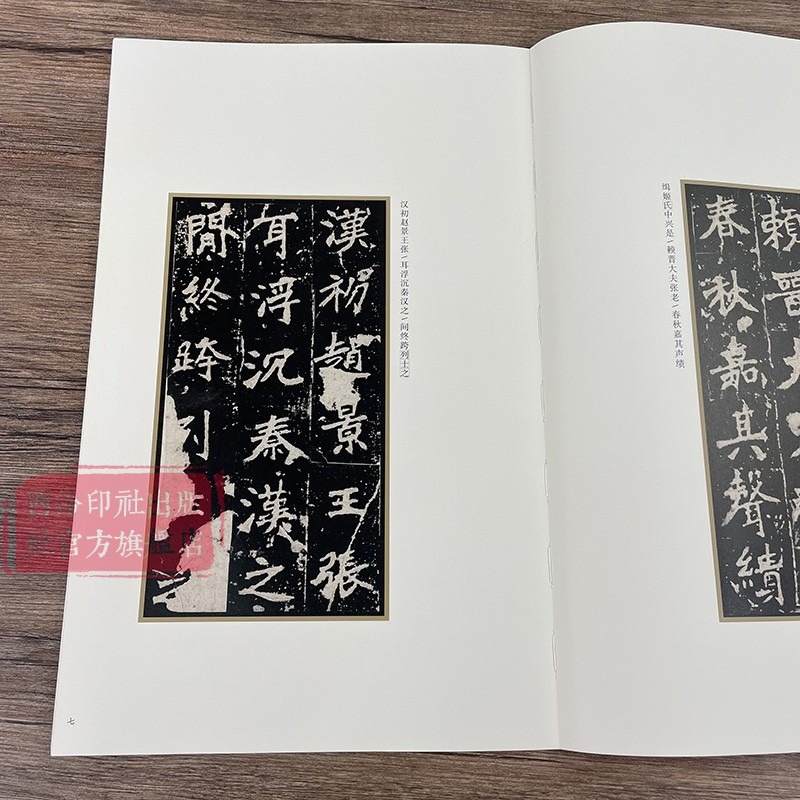 缉姬氏中兴是/赖晋大夫张老/春秋嘉其声绩
賴晉大
春秋嘉其聲績
汉初赵景王张/耳浮沉秦汉之/间终跨列土之
漢初趙景王張
耳浮沉秦漢之
間終跨列之
七
西泠印社出版
社官方旗舰店